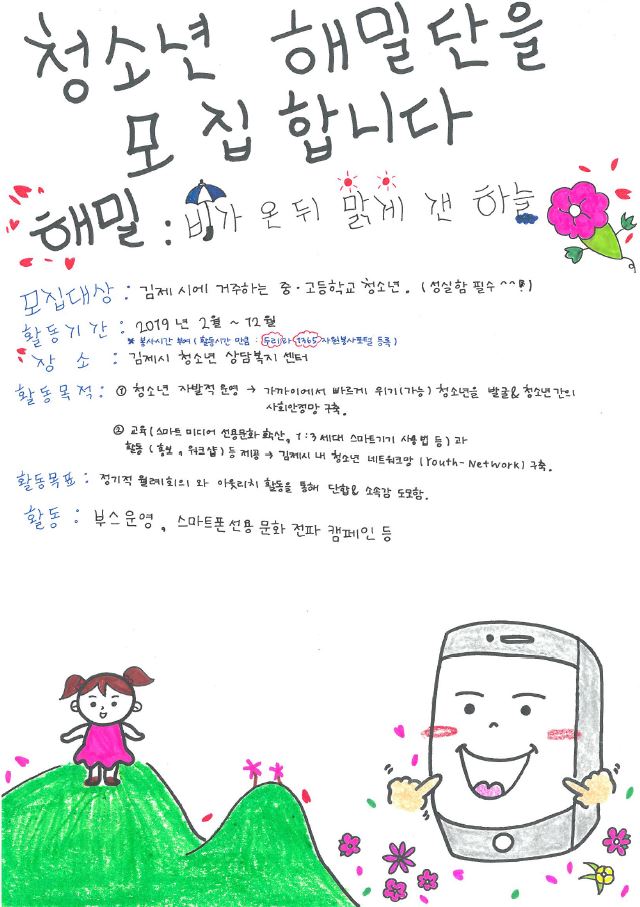 청소년 해밀단을
모집합니다
해밀 : 비가 온 뒤 맑게 갠 하늘
모집대상 : 김제 시에 거주하는 중·고등학교 청소년. (성실함 필수^^!)
활동기간 : 2019년 2월 ~ 12월
※ 봉사시간 부여 ( 활동시간 만큼 : 두리와 1365 자원봉사포털 등록 )
장 소 : 김제시 청소년 상담복지 센터
활동목적 : ① 청소년 자발적 운영 → 가까이에서 빠르게 위기(가능) 청소년을 발굴& 청소년간의
사회안정망 구축.
② 교육(스마트 미디어 선용문화 확산, 1:3세대 스마트기기 사용법 등) 과
활동 (홍보, 워크샵) 등 제공 → 김제시 내 청소년 네트워크망 (Youth-Network) 구축.
활동목표 : 정기적 월례회의 와 아웃리치 활동을 통해 단합& 소속감 도모함.
활동 : 부스운영, 스마트폰 선용 문화 전파 캠페인 등